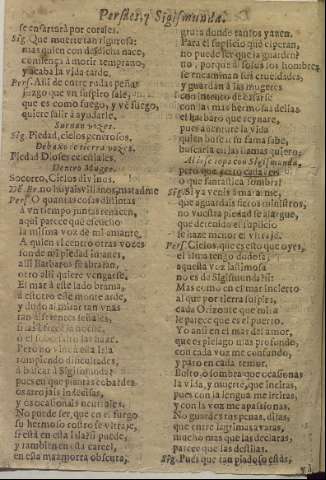 Persiles, y Sigismunda.
se ensartara por corales.
Sig. Que muerte tan rigurosa!
mas quien con desdicha nace,
comiença à morir temprano,
y acaba la vida tarde.
Pers. Assi de entre estas peñas
juzgo que vn suspiro sale,
que es como fuego, y vè fuego,
quiero salir à ayudarle.
Suenan vozes.
Sig. Piedad, cielos generosos.
Debaxo de tierra vozes.
Piedad Dioses celestiales.
Dentro
Socorro, Cielos diuinos.
no huyais villanos, matadme
Pers. O quantas cosas distintas
à vn tiempo juntas renacen,
aqui parece que escucho
la misma voz de mi amante.
A quien el centro otras vozes
ponde mi piedad
alli Barbaros se abrasan,
otro alli quiere vengarse.
El mar à este lado brama,
à estotro este monte arde,
y dudo al mirar tan vnas
tan diferentes señales,
si
ò el
Pero no
rompiendo dificultades,
à buscar à Sigismunda?
pues en que piensas cobardes
os arrojais indecisas,
y os ocasionais
No puede ser, que en el fuego
su hermoso rostro se vitraje,
si està en esta Isla? si puede,
y tambien en esta carcel,
en esta mazmorra obscura,
gruta donde tantos yazen.
Para el suplicio que esperan,
no puede ser que la guarden?
no, porque à solos los hombres
se encaminan sus crueldades,
y guardan à las mugeres
con intento de casarse
con las mas hermosas dellas
el barbaro que reynare,
pues auenture la vida
quien busca su fama sabe,
buscarèla en las llamas quiero.
Al irse topa con Sigismunda.
pero que
o que fantastica sombra!
Sig. Si ya veis à mi amante,
que aguardais fieros ministros,
no vuestra piedad se alargue,
que deteniendo el suplicio
se haze menor el vltraje.
Pers. Cielos, que es esto que oyes,
el alma tengo dudosa,
aquella voz lastimosa
no es de Sigismunda? si:
Mas como en el mar incierto
al que por tierra suspira,
cada Orizonte que mira
le parece que es el puerto.
Yo assi en el mar del amor,
que es pielago mas profundo,
con cada voz me confundo,
y paro en cada temor.
Rostro, ò sombra que ocasionas
la vida, y muerte, que incitas,
pues con la lengua me irritas,
y con la voz me apasionas.
No guardes tus penas, dilas,
que entre lagrimas varas,
mucho mas que las declaras,
parece que las destilas.
Sig. Pues que tan piadoso estàs,